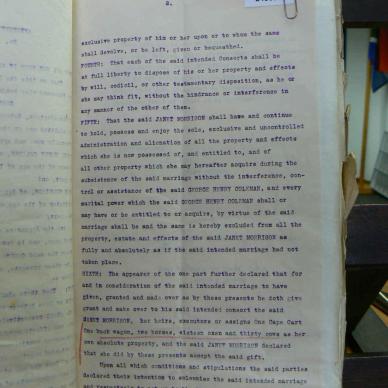 2.
exclusive property of him or her upon or to whom the same
shall devolve, or be left, given or bequeathed.
FOURTH: That each of the said intended Consorts shall be
at full liberty to dispose of his or her property and effects
by will, codicil, or other testamentary disposition, as he or
she may think fit, without the hindrance or interference in
any manner of the other of them.
FIFTH: That the said JANET MORRISON shall have and continue
to hold, possess and enjoy the sole, exclusive and uncontrolled
administration and alienation of all the property and effects
which she is now possessed of, and entitled to, and of
all other property which she may hereafter acquire during the
subsistence of the said marriage without the interference, con-
trol or assistance of the said GEORGE HENRY COLEMAN, and every
marital power which the said GEORGE HENRY COLEMAN shall or
may have or be entitled to or acquire, by virtue of the said
marriage shall be and the same is hereby excluded from all the
property, estate and effects of the said JANET MORRISON as
fully and absolutely as if the said intended marriage had not
taken place.
SIXTH: The appearer of the one part further declared that for
and in consideration of the said intended marriage to have
given, granted and made over as by these presents he doth give
grant and make over to his said intended consort the said
JANET MORRISON, her heirs, executors or assigns One Cape Cart
One buck wagon, two horses, sixteen oxen and thirty cows as her
own absolute property, and the said JANET MORRISON declared
that she did by these presents accept the said gift.
Upon all which conditions and stipulations the said parties
declared their intention to solemnise the said intended marriage